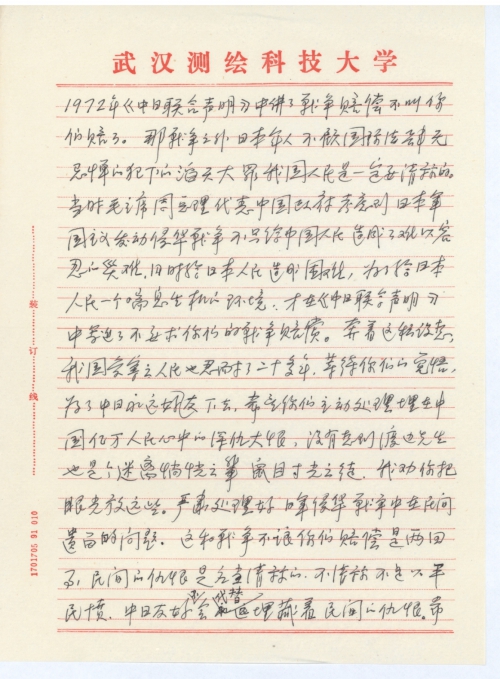 武汉测绘科技大学
1972年《中日联合声明》中讲了战争赔偿不叫你
们赔了。那战争之外日本军人不顾国际法肆无
忌惮的犯下的滔天大罪我国人民是一定要清算的。
当时毛主席周总理代表中国政府考虑到日本军
国主义发动侵华战争不只给中国人民造成了难以容
忍的灾难,同时给日本人民造成困难,为了给日本
人民一个喘息生机的环境,才在《中日联合声明》
中写进了不要求你们的战争赔偿。奔着这种设想,
我国受害之人民也忍耐了二十多年,等待你们的觉悟,
为了中日永远好友下去,希望你们主动处理埋在中
国亿万人民心中的深仇大恨,没有想到渡边先生
也是个迷离惝恍之辈鼠目寸光之徒,我劝你把
眼光放远些。严肃处理好日军侵华战争中在民间
遗留的问题。这和战争不让你们赔偿是两回
事,民间的仇恨是应当清算的,不清算不足以平
民愤,中日友好会 埋藏着民间的仇恨。希
装
订
线
1701705 91 010